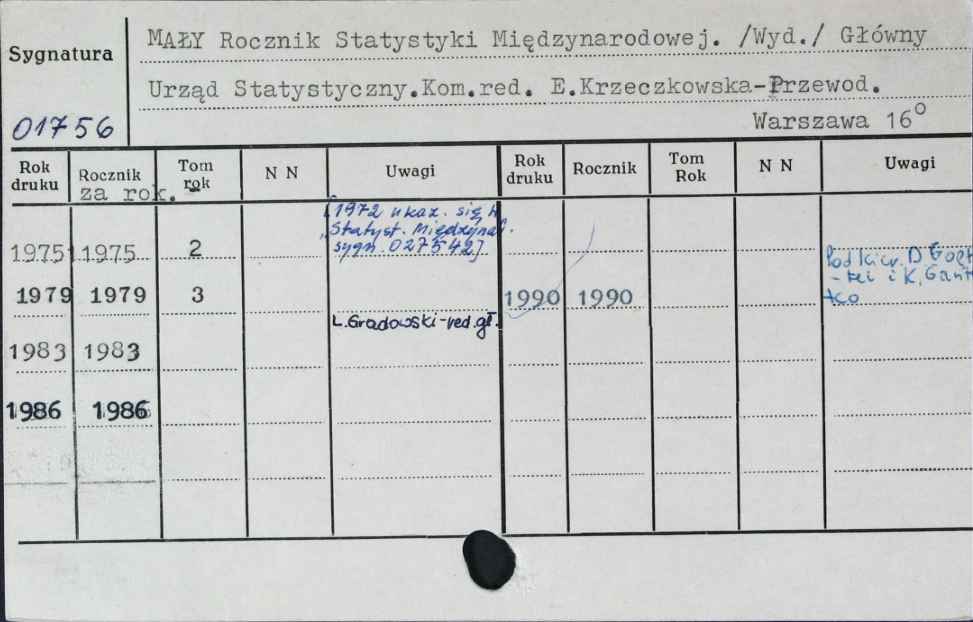 Sygnatura
MAŁY Rocznik Statystyki Międzynarodowej. /Wyd./ Główny
Urząd Statystyczny.Kom.red. E.Krzeczkowska-Przewod.
01756
Warszawa 16°
Rok druku Rocznik Tom rok N N Uwagi Rok druku Rocznik Tom Rok N N Uwagi
za rok.
[1972 ukaz. się
"Statyst. Międzynar.
1975 1975 2 sygn. 027542]
Pod kier. D
- kei i K.
1979 1979 3 1990 1990
L.Gradowski-red.gł.
1983 1983
1986 1986